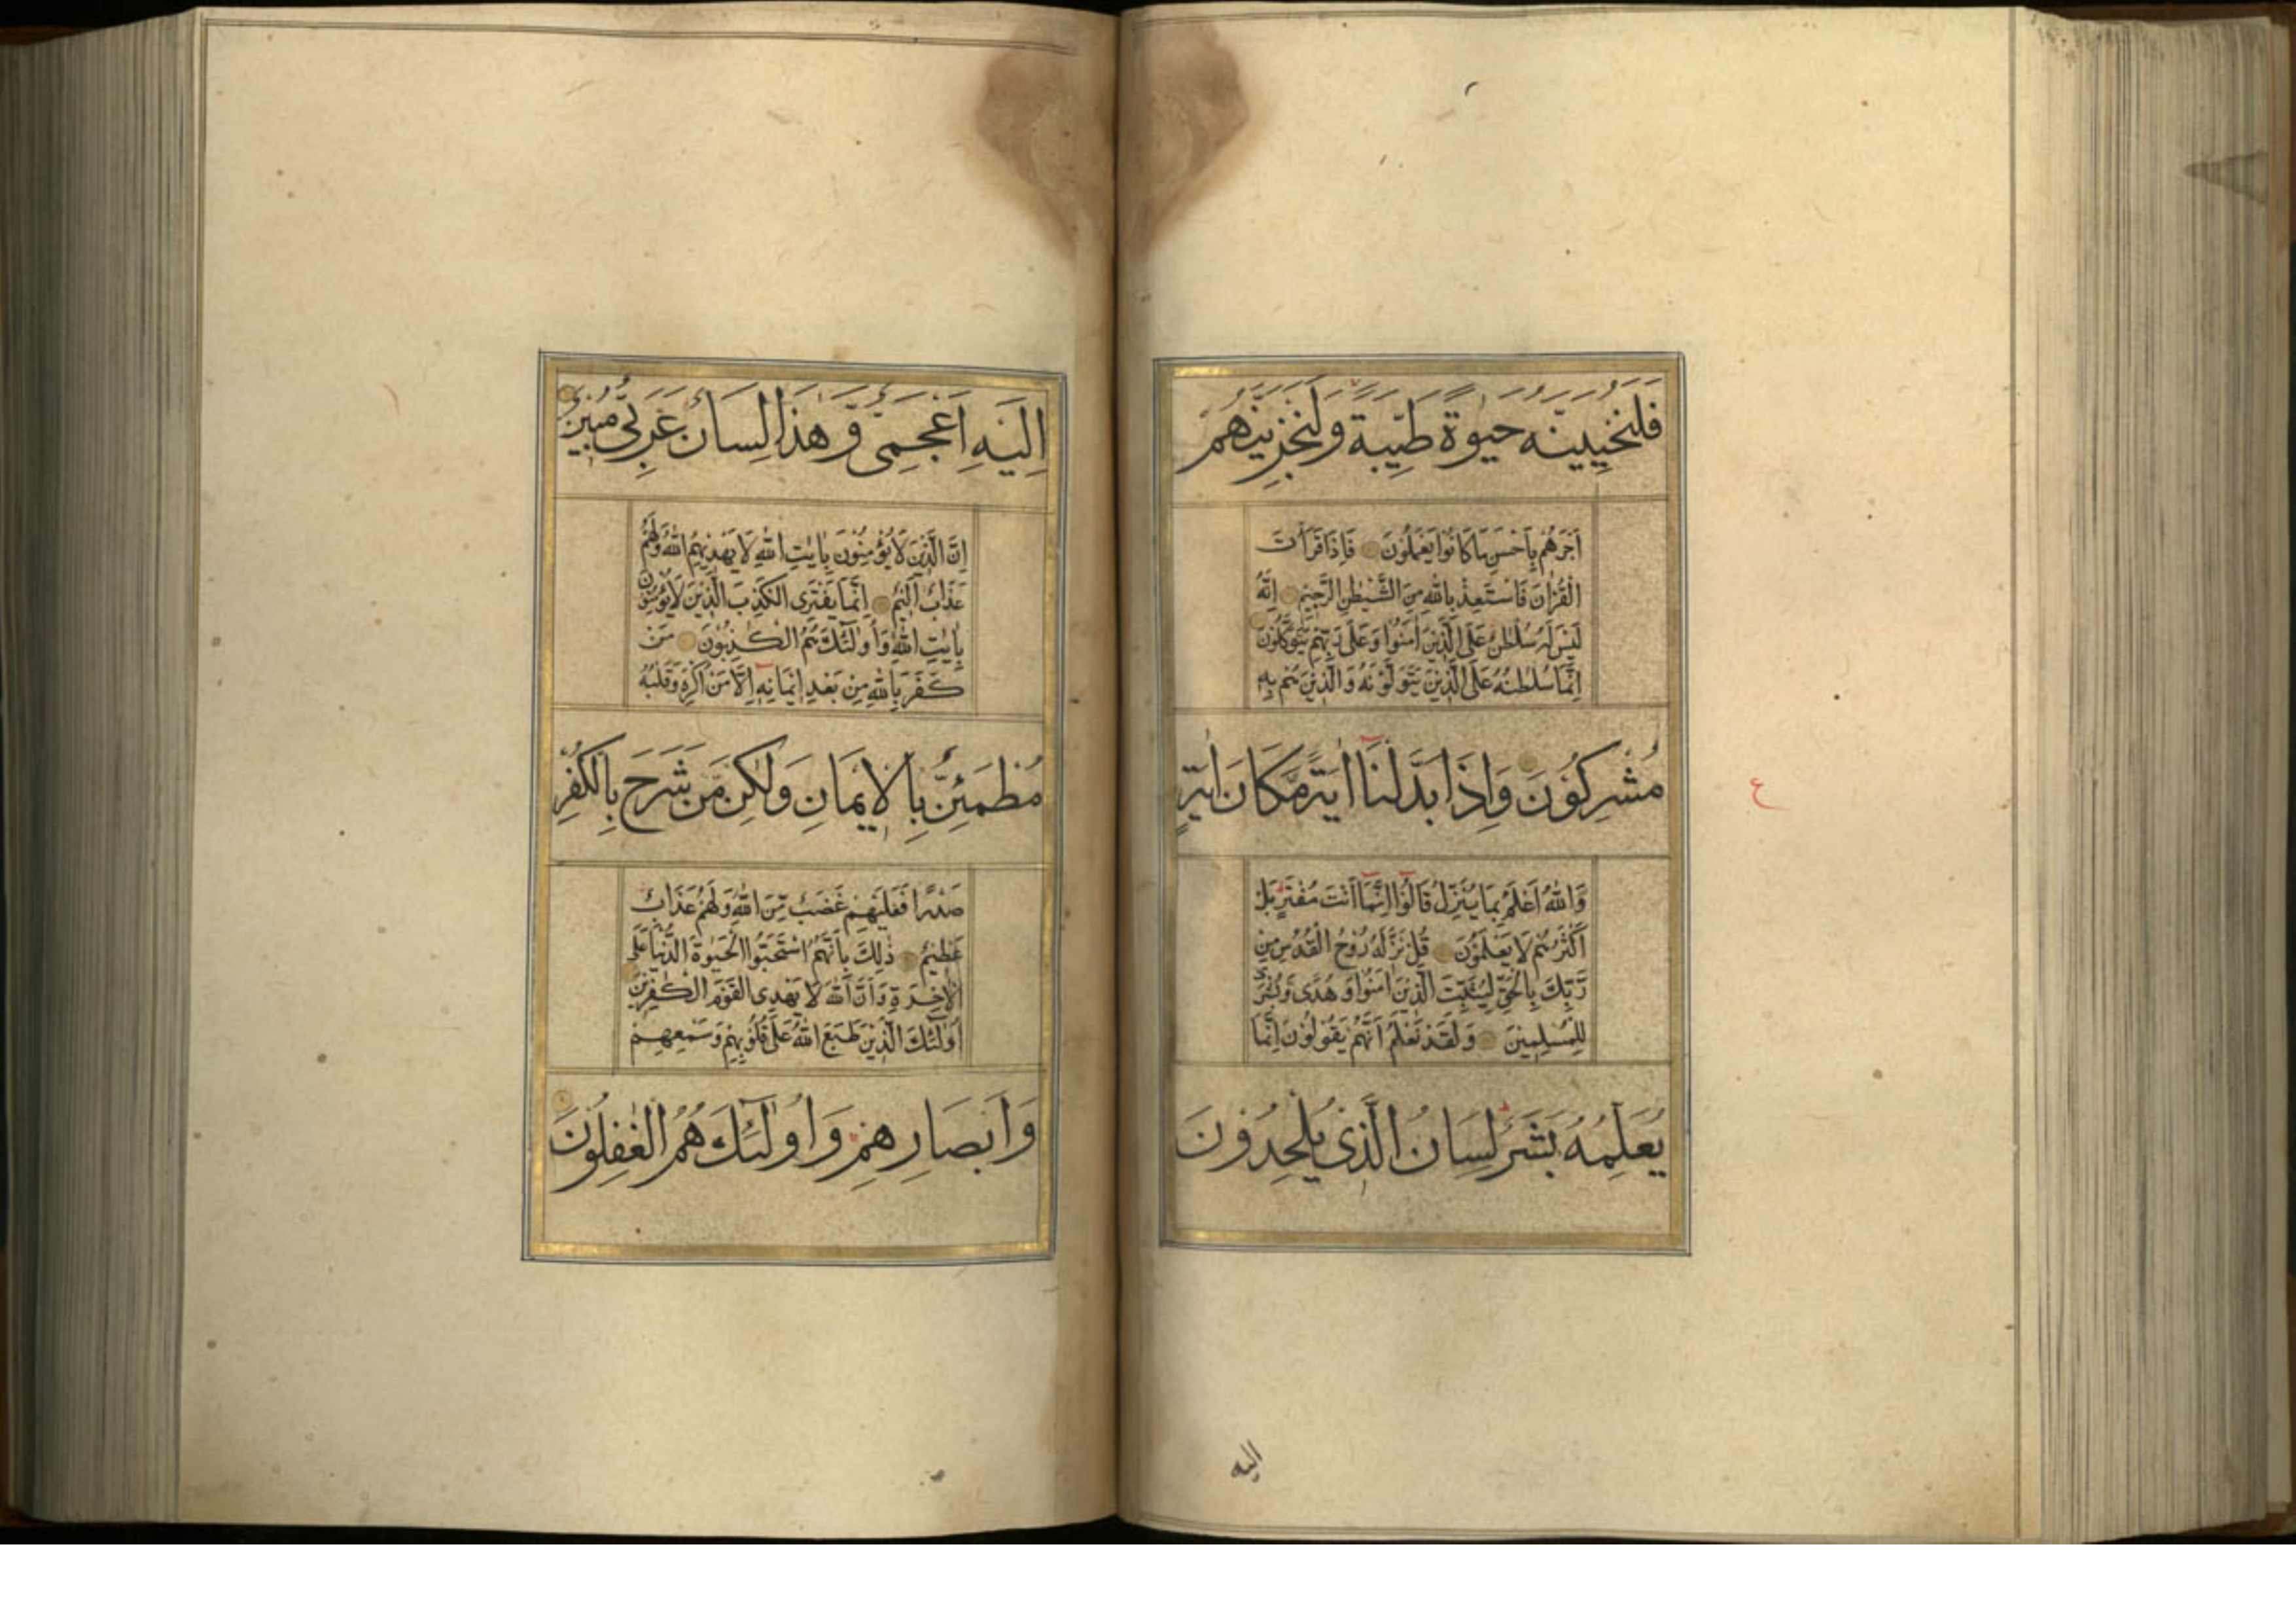 فَلَنُحْيِيَنَّهُ حَيٰوةً طَيِّبَةً وَلَنَجْزِيَنَّهُمْ
اَجْرَهُمْ بِاَحْسَنِ مَا كَانُوا يَعْمَلُونَ فَاِذَا قَرَأْتَ
الْقُرْاٰنَ فَاسْتَعِذْ بِاللّٰهِ مِنَ الشَّيْطٰنِ الرَّجِيْمِ اِنَّهُ
لَيْسَ لَهُ سُلْطٰنٌ عَلَى الَّذِيْنَ اٰمَنُوْا وَعَلٰى رَبِّهِمْ يَتَوَكَّلُوْنَ
اِنَّمَا سُلْطٰنُهُ عَلَى الَّذِيْنَ يَتَوَلَّوْنَهُ وَالَّذِيْنَ هُمْ بِهِ
مُشْرِكُوْنَ وَاِذَا بَدَّلْنَا اٰيَةً مَّكَانَ اٰيَةٍ
وَاللّٰهُ اَعْلَمُ بِمَا يُنَزِّلُ قَالُوْا اِنَّمَا اَنْتَ مُفْتَرٍ بَلْ
اَكْثَرُهُمْ لَا يَعْلَمُوْنَ قُلْ نَزَّلَهُ رُوْحُ الْقُدُسِ مِنْ
رَّبِّكَ بِالْحَقِّ لِيُثَبِّتَ الَّذِيْنَ اٰمَنُوْا وَهُدًى وَبُشْرٰى
لِلْمُسْلِمِيْنَ وَلَقَدْ نَعْلَمُ اَنَّهُمْ يَقُوْلُوْنَ اِنَّمَا
يُعَلِّمُهُ بَشَرٌ لِسَانُ الَّذِىْ يُلْحِدُوْنَ
ع
اليه
اِلَيْهِ اَعْجَمِىٌّ وَّهٰذَا لِسَانٌ عَرَبِىٌّ مُبِيْنٌ
اِنَّ الَّذِيْنَ لَا يُؤْمِنُوْنَ بِاٰيٰتِ اللّٰهِ لَا يَهْدِيْهِمُ اللّٰهُ وَلَهُمْ
عَذَابٌ اَلِيْمٌ اِنَّمَا يَفْتَرِى الْكَذِبَ الَّذِيْنَ لَا يُؤْمِنُوْنَ
بِاٰيٰتِ اللّٰهِ وَاُولٰئِكَ هُمُ الْكٰذِبُوْنَ مَنْ
كَفَرَ بِاللّٰهِ مِنْ بَعْدِ اِيْمَانِهِ اِلَّا مَنْ اُكْرِهَ وَقَلْبُهُ
مُطْمَئِنٌّ بِالْاِيْمَانِ وَلٰكِنْ مَّنْ شَرَحَ بِالْكُفْرِ
صَدْرًا فَعَلَيْهِمْ غَضَبٌ مِّنَ اللّٰهِ وَلَهُمْ عَذَابٌ
عَظِيْمٌ ذٰلِكَ بِاَنَّهُمُ اسْتَحَبُّوا الْحَيٰوةَ الدُّنْيَا عَلَى
الْاٰخِرَةِ وَاَنَّ اللّٰهَ لَا يَهْدِى الْقَوْمَ الْكٰفِرِيْنَ
اُولٰئِكَ الَّذِيْنَ طَبَعَ اللّٰهُ عَلٰى قُلُوْبِهِمْ وَسَمْعِهِمْ
وَاَبْصَارِهِمْ وَاُولٰئِكَ هُمُ الْغٰفِلُوْنَ